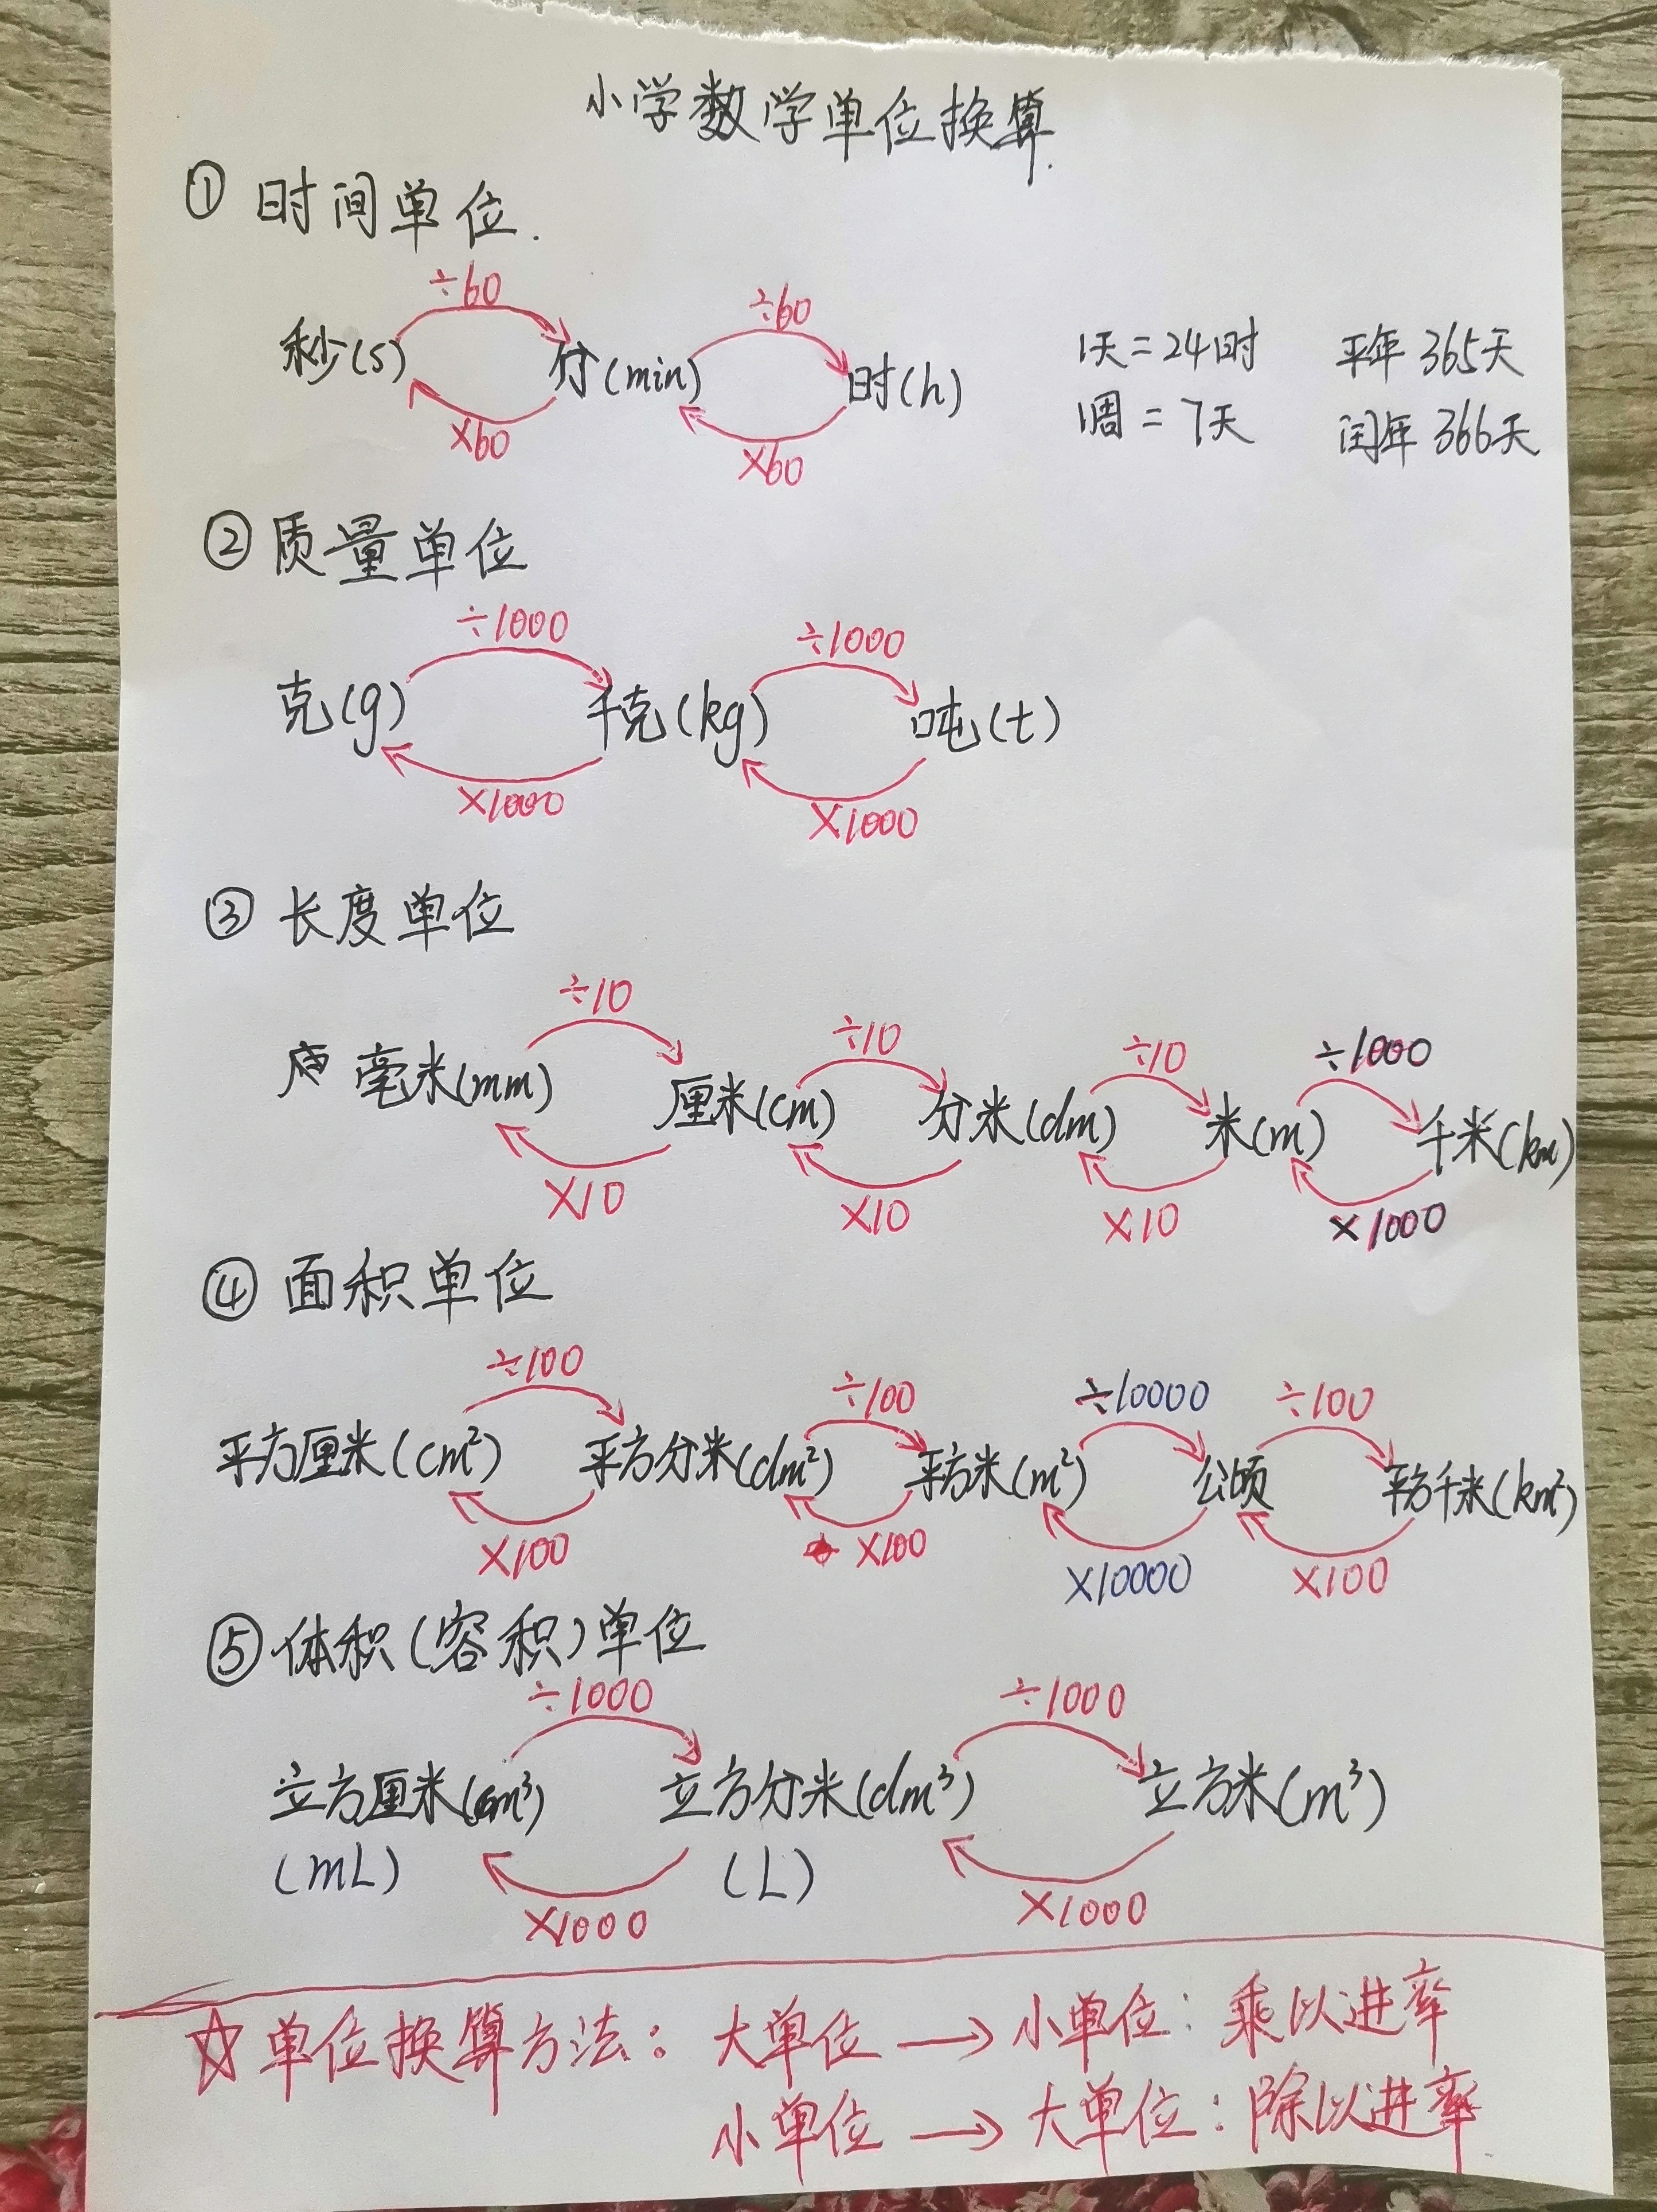 小学数学单位换算.
① 时间单位.
÷60 ÷60
秒(s) 分(min) 时(h) 1天=24时 平年 365天
×60 ×60 1周=7天 闰年 366天
② 质量单位
÷1000 ÷1000
克(g) 千克(kg) 吨(t)
×1000 ×1000
③ 长度单位
÷10 ÷10 ÷10 ÷1000
毫米(mm) 厘米(cm) 分米(dm) 米(m) 千米(km)
×10 ×10 ×10 ×1000
④ 面积单位
÷100 ÷100 ÷10000 ÷100
平方厘米(cm²) 平方分米(dm²) 平方米(m²) 公顷 平方千米(km²)
×100 ×100 ×10000 ×100
⑤ 体积(容积)单位
÷1000 ÷1000
立方厘米(cm³) 立方分米(dm³) 立方米(m³)
(mL) (L)
×1000 ×1000
☆ 单位换算方法: 大单位 → 小单位: 乘以进率
小单位 → 大单位: 除以进率